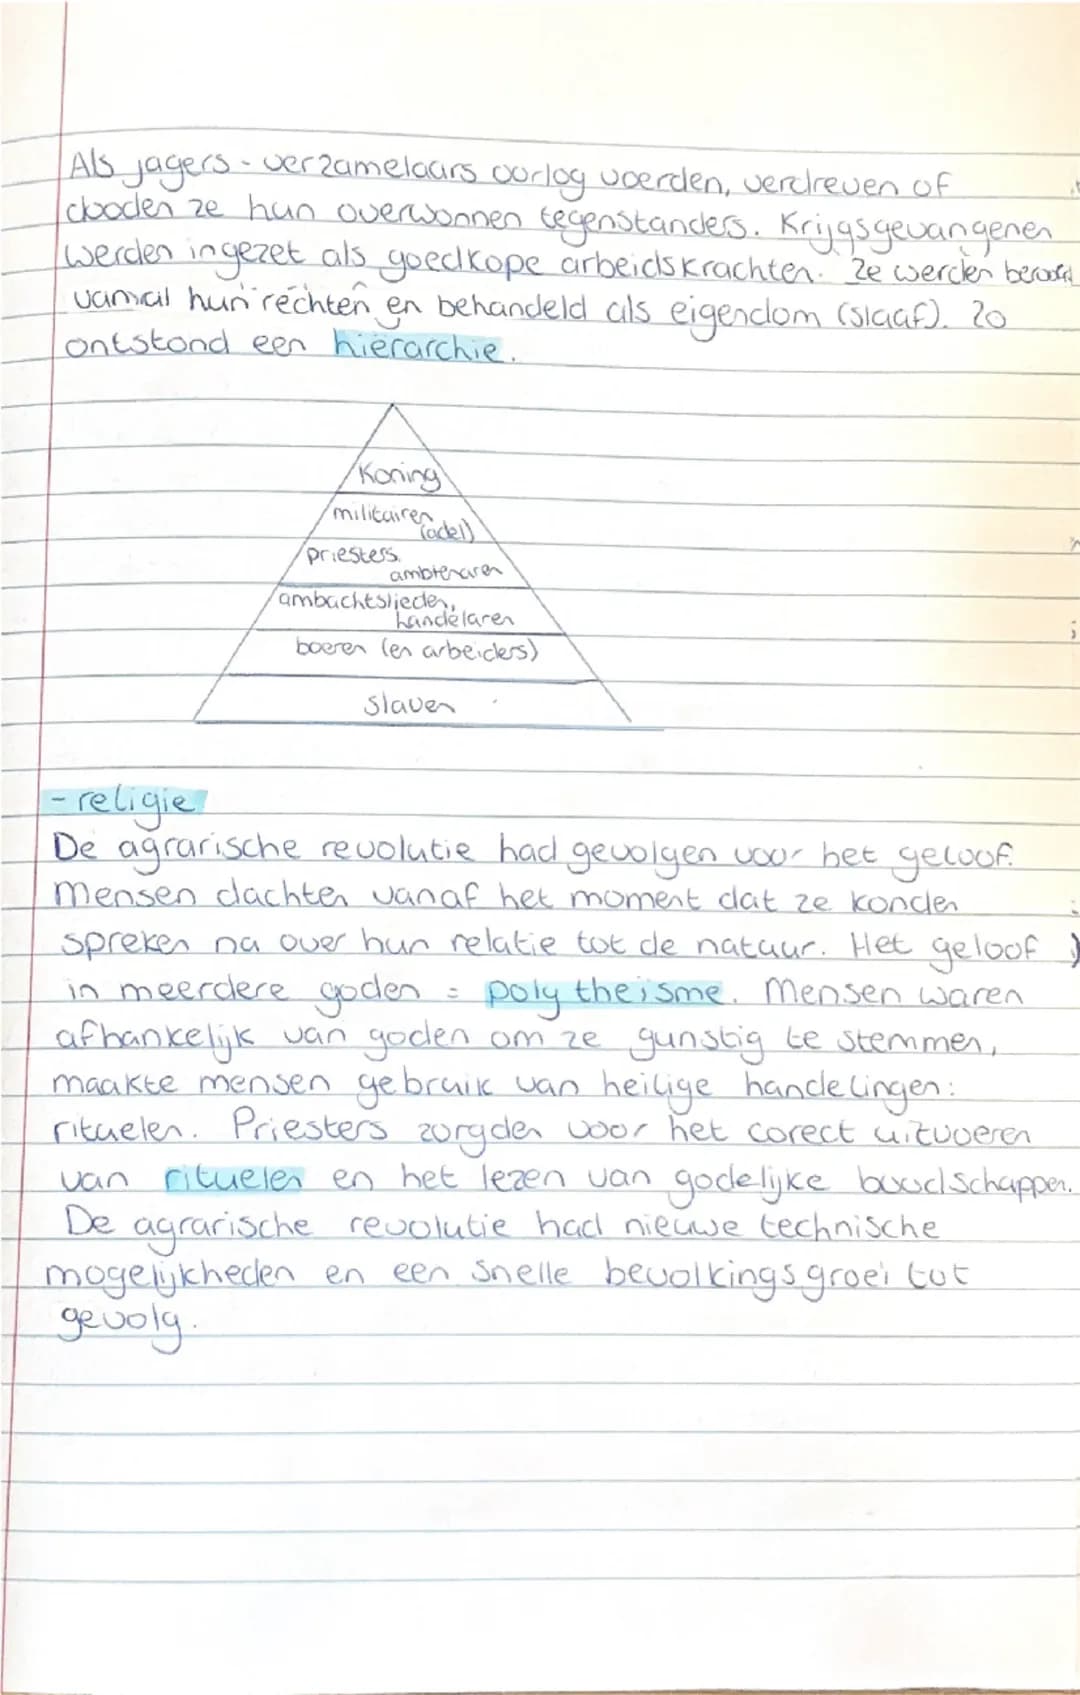 Als jagers - verzamelaars oorlog voerden, verdreven of
doden ze hun overwonnen tegenstanders. Krijgsgevangenen
werden ingezet als goedkope arbeidskrachten. Ze werden beroofd
vamal hun rechten en behandeld als eigendom (slaaf). Zo
ontstond een hiërarchie.
Koning
militairen
(adel)
priesters.
ambtenaren
ambachtslieden,
handelaren
boeren (en arbeiders)
slaven
- religie
De agrarische revolutie had gevolgen voor het geloof.
Mensen dachten vanaf het moment dat ze konden
spreken na over hun relatie tot de natuur. Het geloof
in meerdere goden = polytheisme. Mensen waren
afhankelijk van goden om ze gunstig te stemmen,
maakte mensen gebruik van heilige handelingen:
rituelen. Priesters zorgden voor het corect uitvoeren
van rituelen en het lezen van godelijke boodschappen.
De agrarische revolutie had nieuwe technische
mogelijkheden en een snelle bevolkingsgroei tot
gevolg.